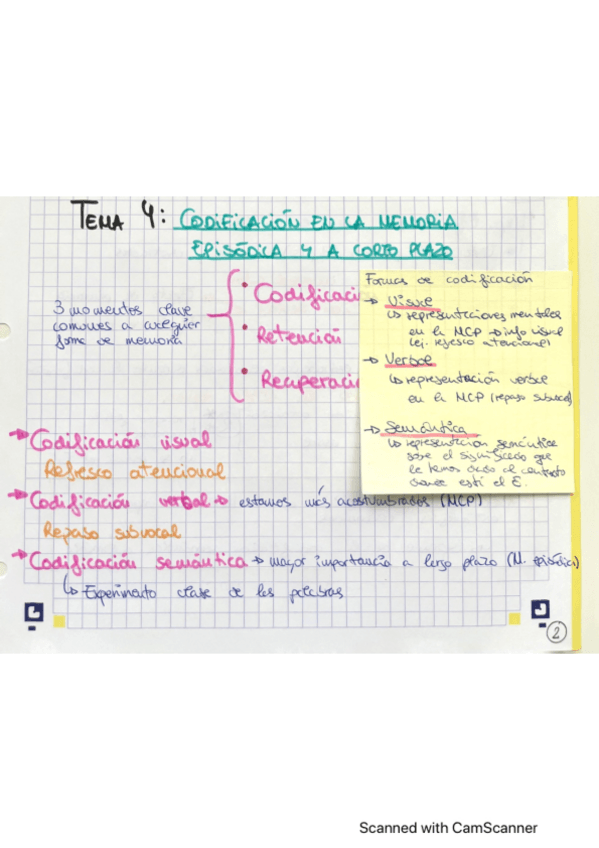 TEMA 4: CODIFICACIÓN EN LA MEMORIA
EPISÓDICA Y A CORTO PLAZO
3 momentos clave
comunes a cualquier
forma de memoria
• Codificaci
• Retención
• Recuperaci
Formas de codificación
→ Visual
↳ representaciones mentales
en la MCP → info visual
(ej. refresco atencional)
→ Verbal
↳ representación verbal
en la MCP (repaso subvocal)
→ Semántica
↳ representación semántica
sobre el significado que
le hemos dado al contexto
donde está el E.
→ Codificación visual
Refresco atencional
→ Codificación verbal → estamos más acostumbrados (MCP)
Repaso subvocal
→ Codificación semántica → mayor importancia a largo plazo (M. episódica)
↳ Experimento clase de las palabras
2
Scanned with CamScanner